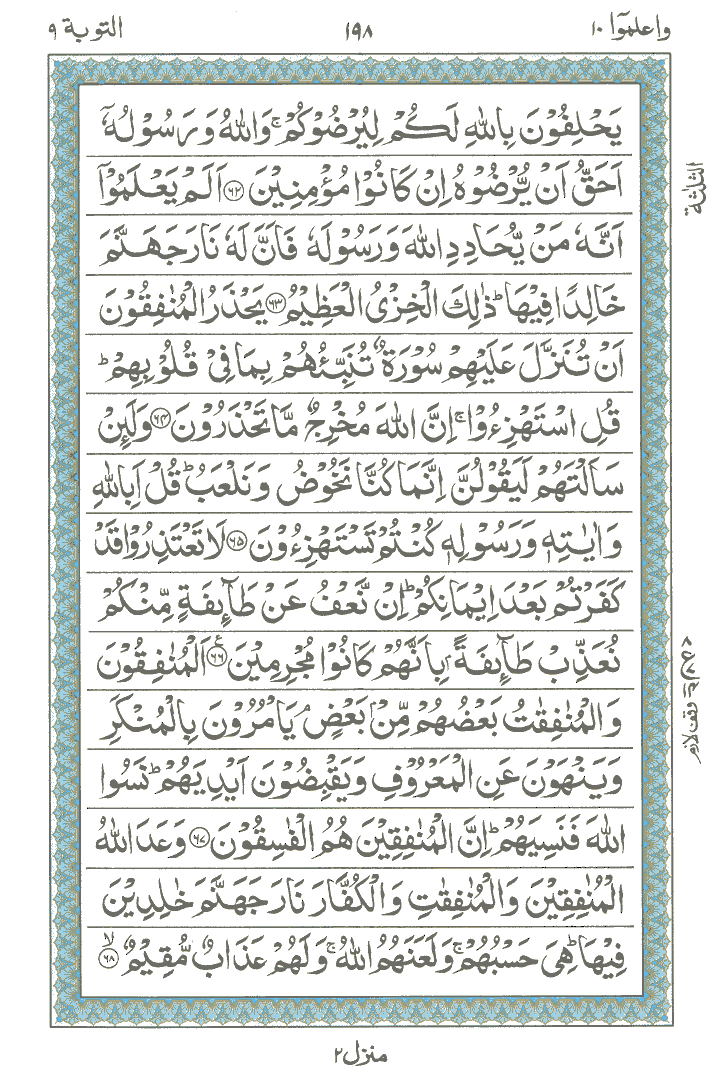 واعلموا ١٠
١٩٨
التوبة ٩
يَحْلِفُوْنَ بِاللّٰهِ لَكُمْ لِيُرْضُوْكُمْ ۚ وَاللّٰهُ وَرَسُوْلُهٗۤ
اَحَقُّ اَنْ يُّرْضُوْهُ اِنْ كَانُوْا مُؤْمِنِيْنَ ﴿٦٢﴾ اَلَمْ يَعْلَمُوْۤا
اَنَّهٗ مَنْ يُّحَادِدِ اللّٰهَ وَرَسُوْلَهٗ فَاَنَّ لَهٗ نَارَ جَهَنَّمَ
خَالِدًا فِيْهَا ؕ ذٰلِكَ الْخِزْىُ الْعَظِيْمُ ﴿٦٣﴾ يَحْذَرُ الْمُنٰفِقُوْنَ
اَنْ تُنَزَّلَ عَلَيْهِمْ سُوْرَةٌ تُنَبِّئُهُمْ بِمَا فِىْ قُلُوْبِهِمْ ؕ
قُلِ اسْتَهْزِءُوْا ۚ اِنَّ اللّٰهَ مُخْرِجٌ مَّا تَحْذَرُوْنَ ﴿٦٤﴾ وَلَئِنْ
سَاَلْتَهُمْ لَيَقُوْلُنَّ اِنَّمَا كُنَّا نَخُوْضُ وَنَلْعَبُ ؕ قُلْ اَبِاللّٰهِ
وَاٰيٰتِهٖ وَرَسُوْلِهٖ كُنْتُمْ تَسْتَهْزِءُوْنَ ﴿٦٥﴾ لَا تَعْتَذِرُوْا قَدْ
كَفَرْتُمْ بَعْدَ اِيْمَانِكُمْ ؕ اِنْ نَّعْفُ عَنْ طَآئِفَةٍ مِّنْكُمْ
نُعَذِّبْ طَآئِفَةًۢ بِاَنَّهُمْ كَانُوْا مُجْرِمِيْنَ ﴿٦٦﴾ اَلْمُنٰفِقُوْنَ
وَالْمُنٰفِقٰتُ بَعْضُهُمْ مِّنْۢ بَعْضٍ ۘ يَاْمُرُوْنَ بِالْمُنْكَرِ
وَيَنْهَوْنَ عَنِ الْمَعْرُوْفِ وَيَقْبِضُوْنَ اَيْدِيَهُمْ ؕ نَسُوا
اللّٰهَ فَنَسِيَهُمْ ؕ اِنَّ الْمُنٰفِقِيْنَ هُمُ الْفٰسِقُوْنَ ﴿٦٧﴾ وَعَدَ اللّٰهُ
الْمُنٰفِقِيْنَ وَالْمُنٰفِقٰتِ وَالْكُفَّارَ نَارَ جَهَنَّمَ خٰلِدِيْنَ
فِيْهَا ؕ هِىَ حَسْبُهُمْ ۚ وَلَعَنَهُمُ اللّٰهُ ۚ وَلَهُمْ عَذَابٌ مُّقِيْمٌ ﴿٦٨﴾ ۙ
الثلثة
وقف لازم
منزل ٢